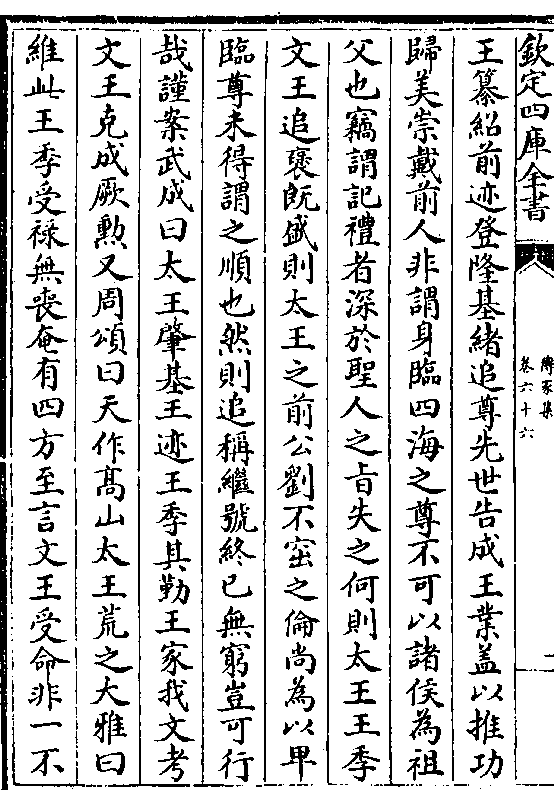 欽定四庫全書
傳家集
卷六十六
王纂紹前迹登隆基緒追尊先世告成王業盖以推功
歸美崇戴前人非謂身臨四海之尊不可以諸侯為祖
父也竊謂記禮者深於聖人之㫖失之何則太王王季
文王追褒既盛則太王之前公劉不窋之倫尚為以卑
臨尊未得謂之順也然則追稱繼號終已無窮豈可行
哉謹案武成曰太王肇基王迹王季其勤王家我文考
文王克成厥勲又周頌曰天作髙山太王荒之大雅曰
維此王季受禄無喪奄有四方至言文王受命非一不